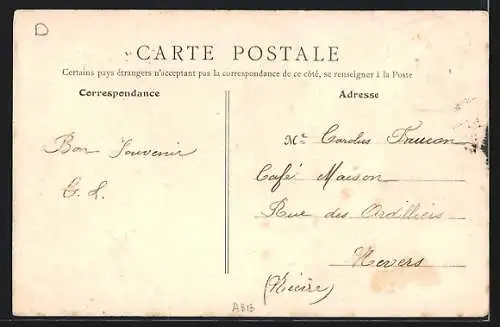 D
CARTE POSTALE
Certains pays étrangers n'acceptant pas la correspondance de ce côté, se renseigner à la Poste
Correspondance
Adresse
Bon Souvenir
G. L.
Mr Carolus Faucon
Café Maison
Rue des Ardilliers
Nevers
(Nièvre)
A813